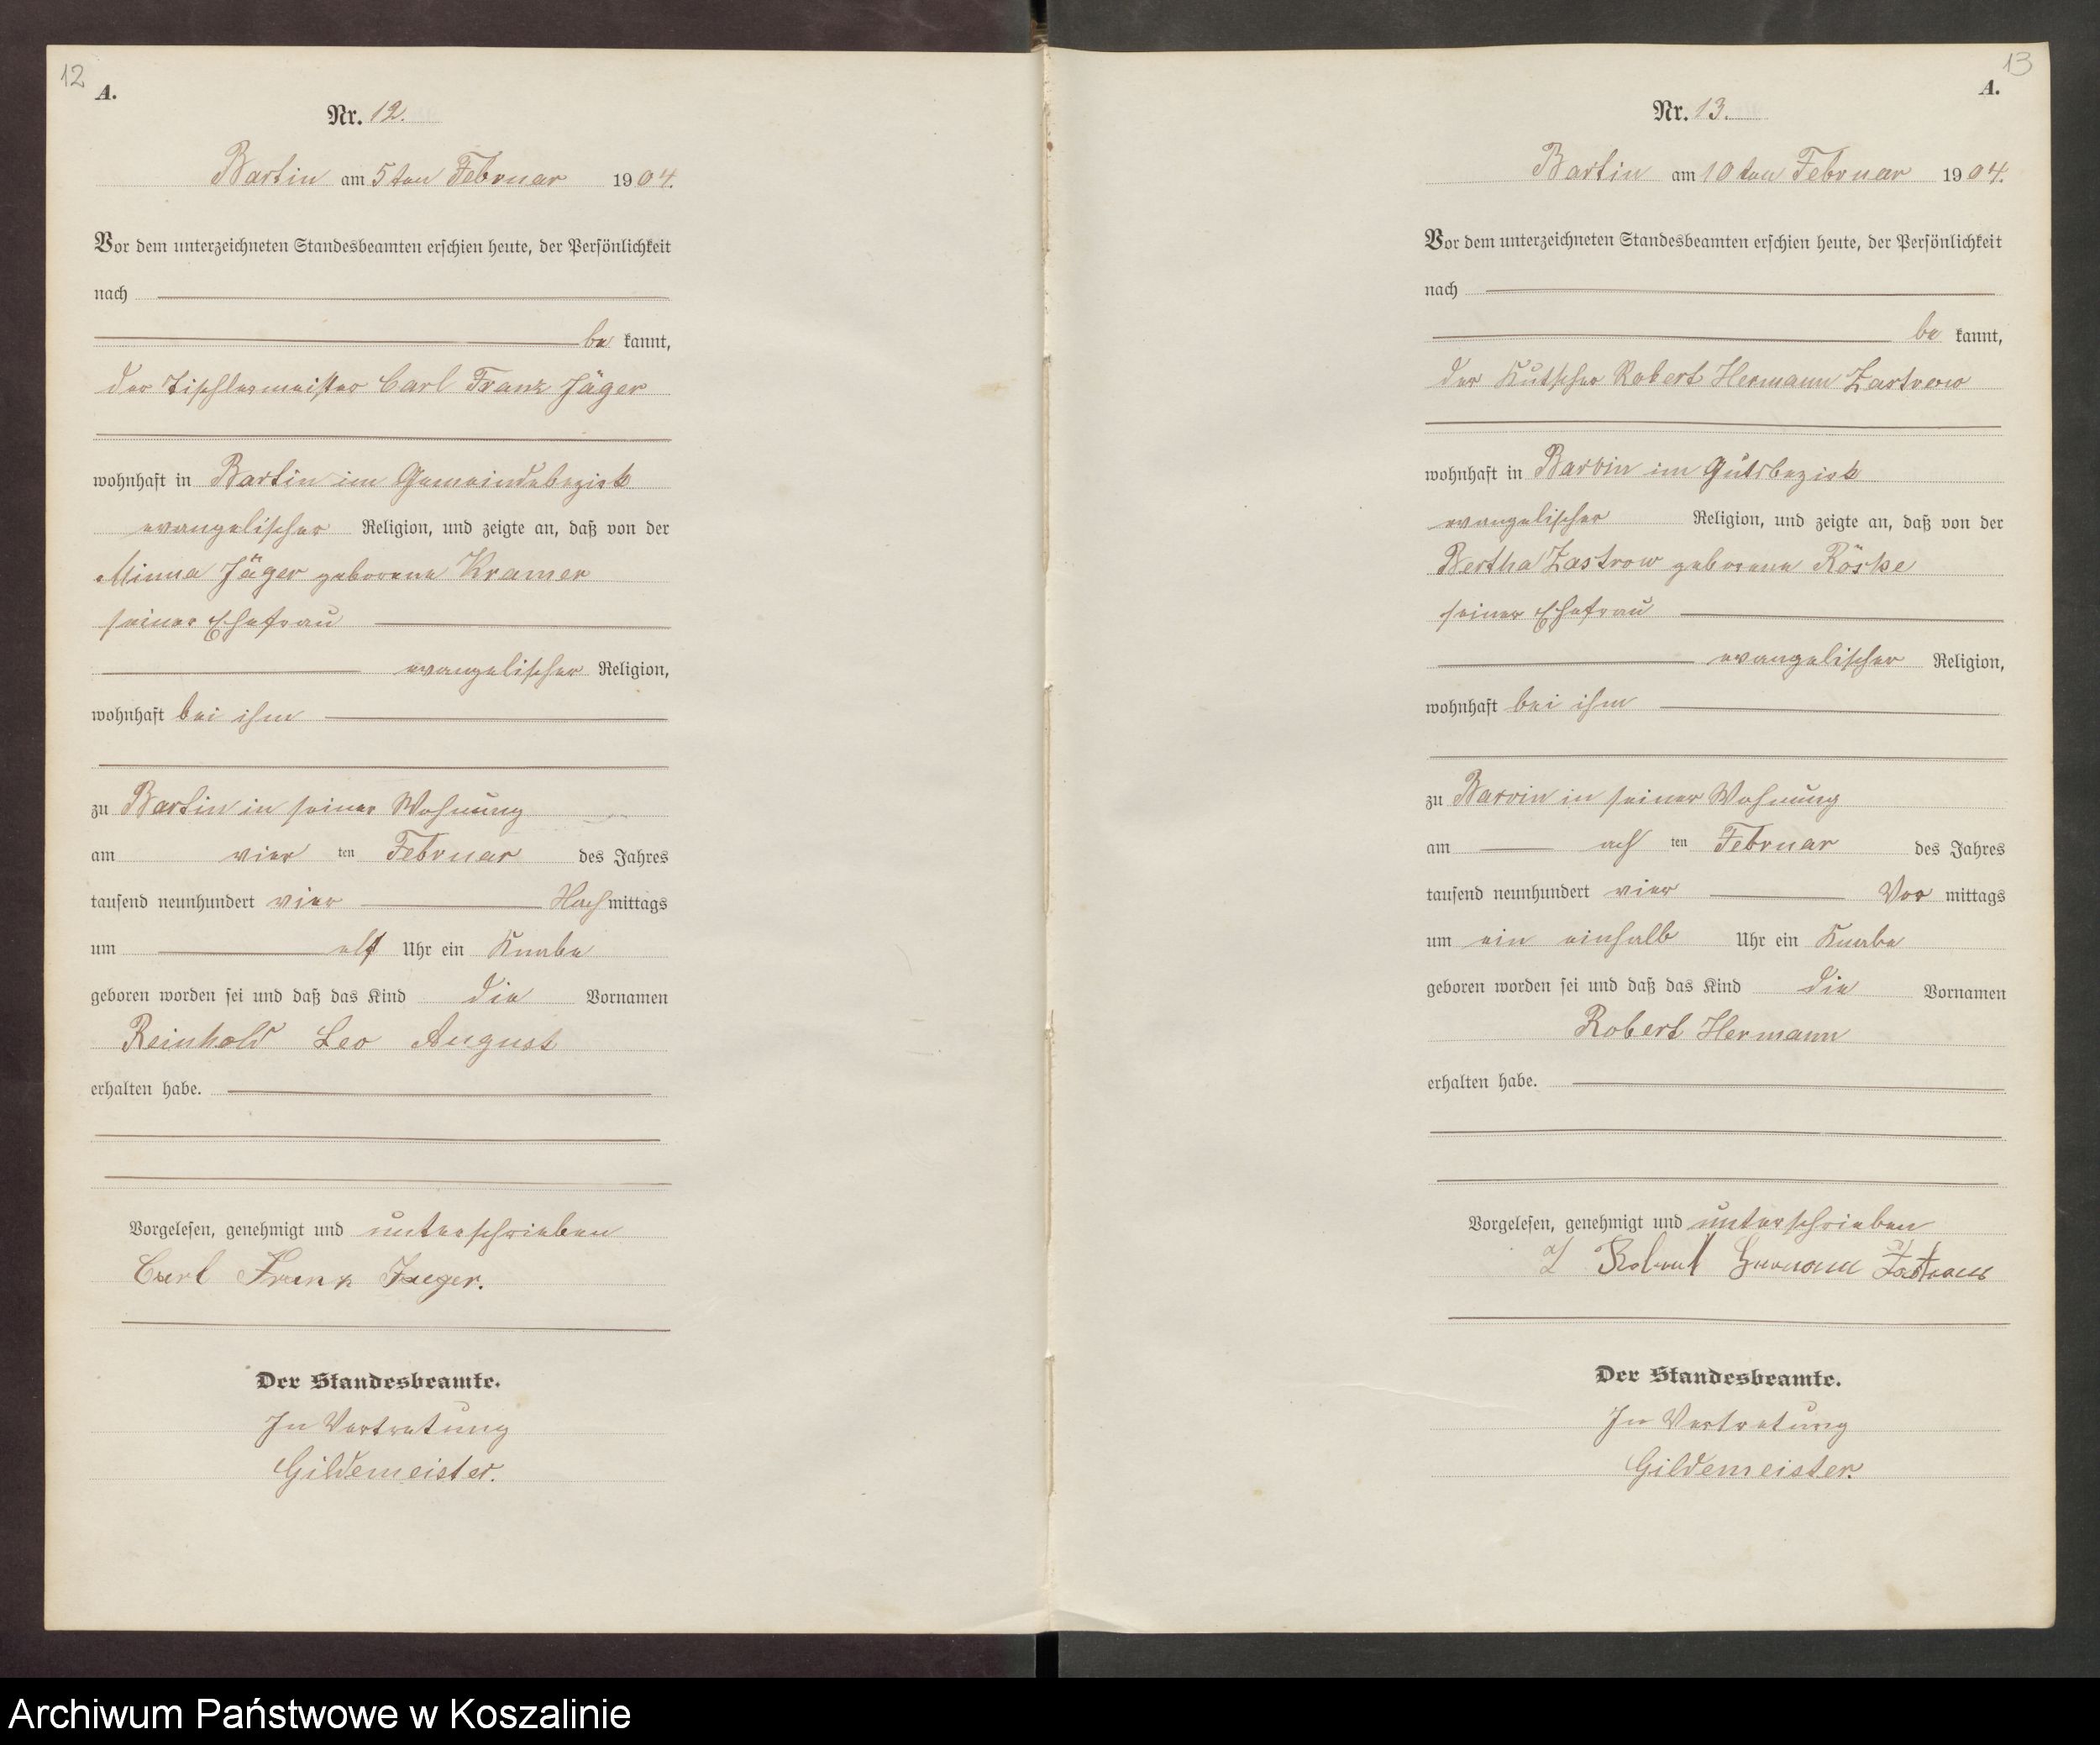 12
A.
Nr. 12.
Bartin am 5ten Februar 1904.
Vor dem unterzeichneten Standesbeamten erschien heute, der Persönlichkeit
nach
be kannt,
der Tischlermeister Carl Franz Jäger
wohnhaft in Bartin im Gemeindebezirk
evangelischer Religion, und zeigte an, daß von der
Minna Jäger geborene Kramer
seiner Ehefrau
evangelischer Religion,
wohnhaft bei ihm
zu Bartin in seiner Wohnung
am vier ten Februar des Jahres
tausend neunhundert vier Nach mittags
um elf Uhr ein Knabe
geboren worden sei und daß das Kind die Vornamen
Reinhold Leo August
erhalten habe.
Vorgelesen, genehmigt und unterschrieben
Carl Franz Jaeger.
Der Standesbeamte.
In Vertretung
Gildemeister.
13
A.
Nr. 13.
Bartin am 10ten Februar 1904.
Vor dem unterzeichneten Standesbeamten erschien heute, der Persönlichkeit
nach
be kannt,
der Kutscher Robert Hermann Zastrow
wohnhaft in Barvin im Gutsbezirk
evangelischer Religion, und zeigte an, daß von der
Bertha Zastrow geborene Röske
seiner Ehefrau
evangelischer Religion,
wohnhaft bei ihm
zu Barvin in seiner Wohnung
am ach ten Februar des Jahres
tausend neunhundert vier Vor mittags
um ein einhalb Uhr ein Knabe
geboren worden sei und daß das Kind die Vornamen
Robert Hermann
erhalten habe.
Vorgelesen, genehmigt und unterschrieben
Robert Hermann Zastrow
Der Standesbeamte.
In Vertretung
Gildemeister.
Archiwum Państwowe w Koszalinie